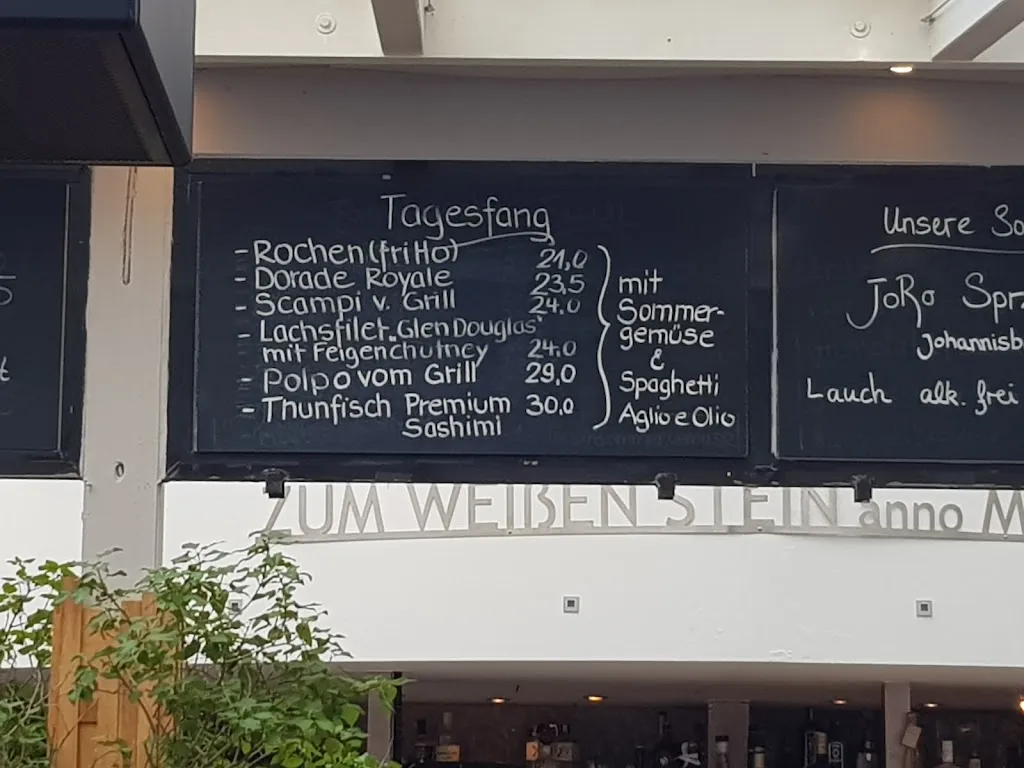 Tagesfang
- Rochen (friHo) 21,0
- Dorade Royale 23,5
- Scampi v. Grill 24.0
- Lachsfilet "Glen Douglas"
mit Feigenchutney 24.0
- Polpo vom Grill 29,0
- Thunfisch Premium 30,0
Sashimi
mit
Sommer-
gemüse
&
Spaghetti
Aglio e Olio
Unsere
JoRo
Lauch alk. frei
ZUM WEIßEN STEIN anno